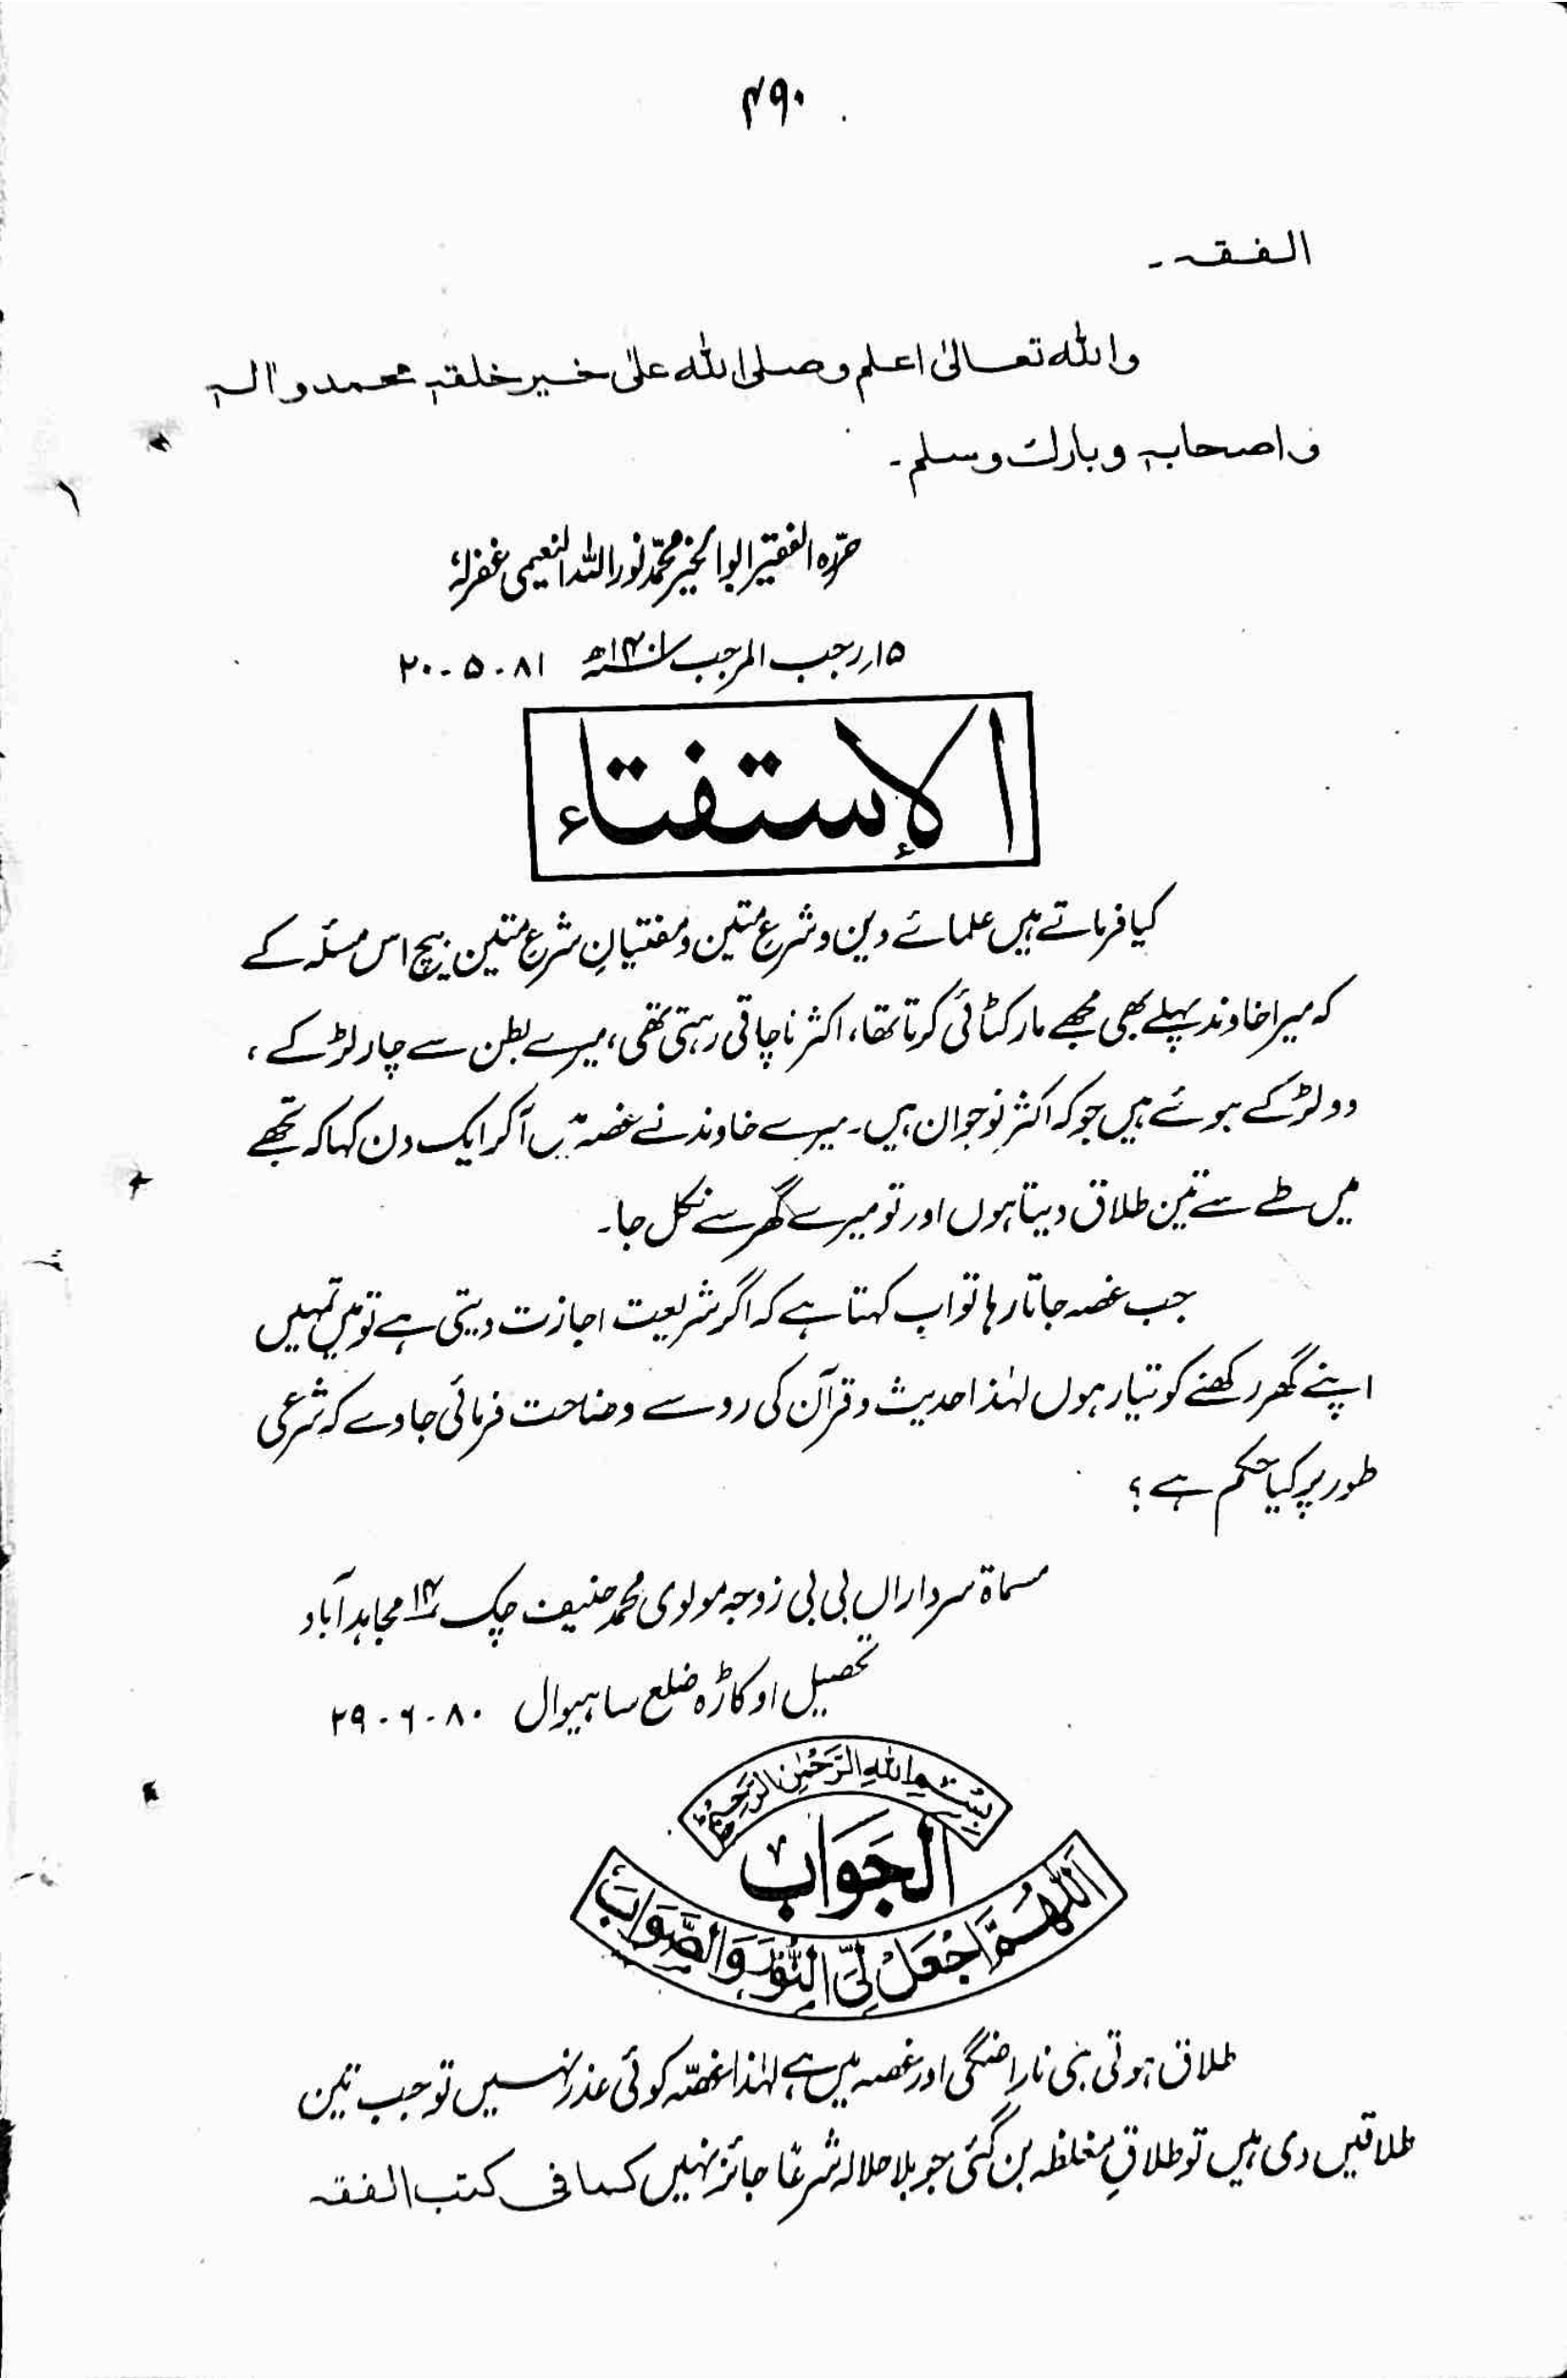 ۴۹۰
الفقہ۔
واللہ تعالیٰ اعلم وصلی اللہ علیٰ خیر خلقہٖ محمد واٰلہٖ
واصحابہٖ وبارک وسلم۔
حررہ الفقیر ابوالخیر محمد نوراللہ النعیمی غفرلہٗ
۱۵؍رجب المرجب ۱۴۰۱ھ ۸۱۔۵۔۲۰
الإستفتاء
کیا فرماتے ہیں علمائے دین و شرعِ متین و مفتیانِ شرعِ متین بیچ اس مسئلہ کے
کہ میرا خاوند پہلے بھی مجھے مار کٹائی کرتا تھا، اکثر ناچاقی رہتی تھی، میرے بطن سے چار لڑکے،
دو لڑکے ہوئے ہیں جو کہ اکثر نوجوان ہیں۔ میرے خاوند نے غصہ میں آکر ایک دن کہا کہ تجھے
میں طے سے تین طلاق دیتا ہوں اور تو میرے گھر سے نکل جا۔
جب غصہ جاتا رہا تو اب کہتا ہے کہ اگر شریعت اجازت دیتی ہے تو میں تمہیں
اپنے گھر رکھنے کو تیار ہوں لہٰذا حدیث و قرآن کی رو سے وضاحت فرمائی جاوے کہ شرعی
طور پر کیا حکم ہے؟
مسماۃ سرداراں بی بی زوجہ مولوی محمد حنیف چک ۱۴ مجاہد آباد
تحصیل اوکاڑہ ضلع ساہیوال ۸۰۔۶۔۲۹
بِسْمِ اللہِ الرَّحْمٰنِ الرَّحِیْمِ
الجَوَابُ
اَللّٰھُمَّ اجْعَلْ لِیَ النُّوْرَ وَالصَّوَابَ
طلاق ہوتی ہی ناراضگی اور غصہ میں ہے لہٰذا غصّہ کوئی عذر نہیں تو جب تین
طلاقیں دی ہیں تو طلاقِ مغلظہ بن گئی جو بلا حلالہ شرعًا جائز نہیں کما فی کتب الفقہ